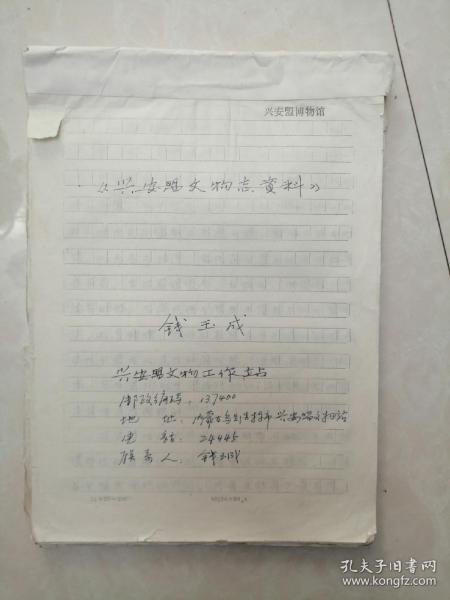 兴安盟博物馆
《兴安盟文物志资料》
钱玉成
兴安盟文物工作站
邮政编码：137400
地 址：内蒙古乌兰浩特市兴安盟文物站
电 话：24445
联系人：钱玉成
孔夫子旧书网
www.kongfz.com